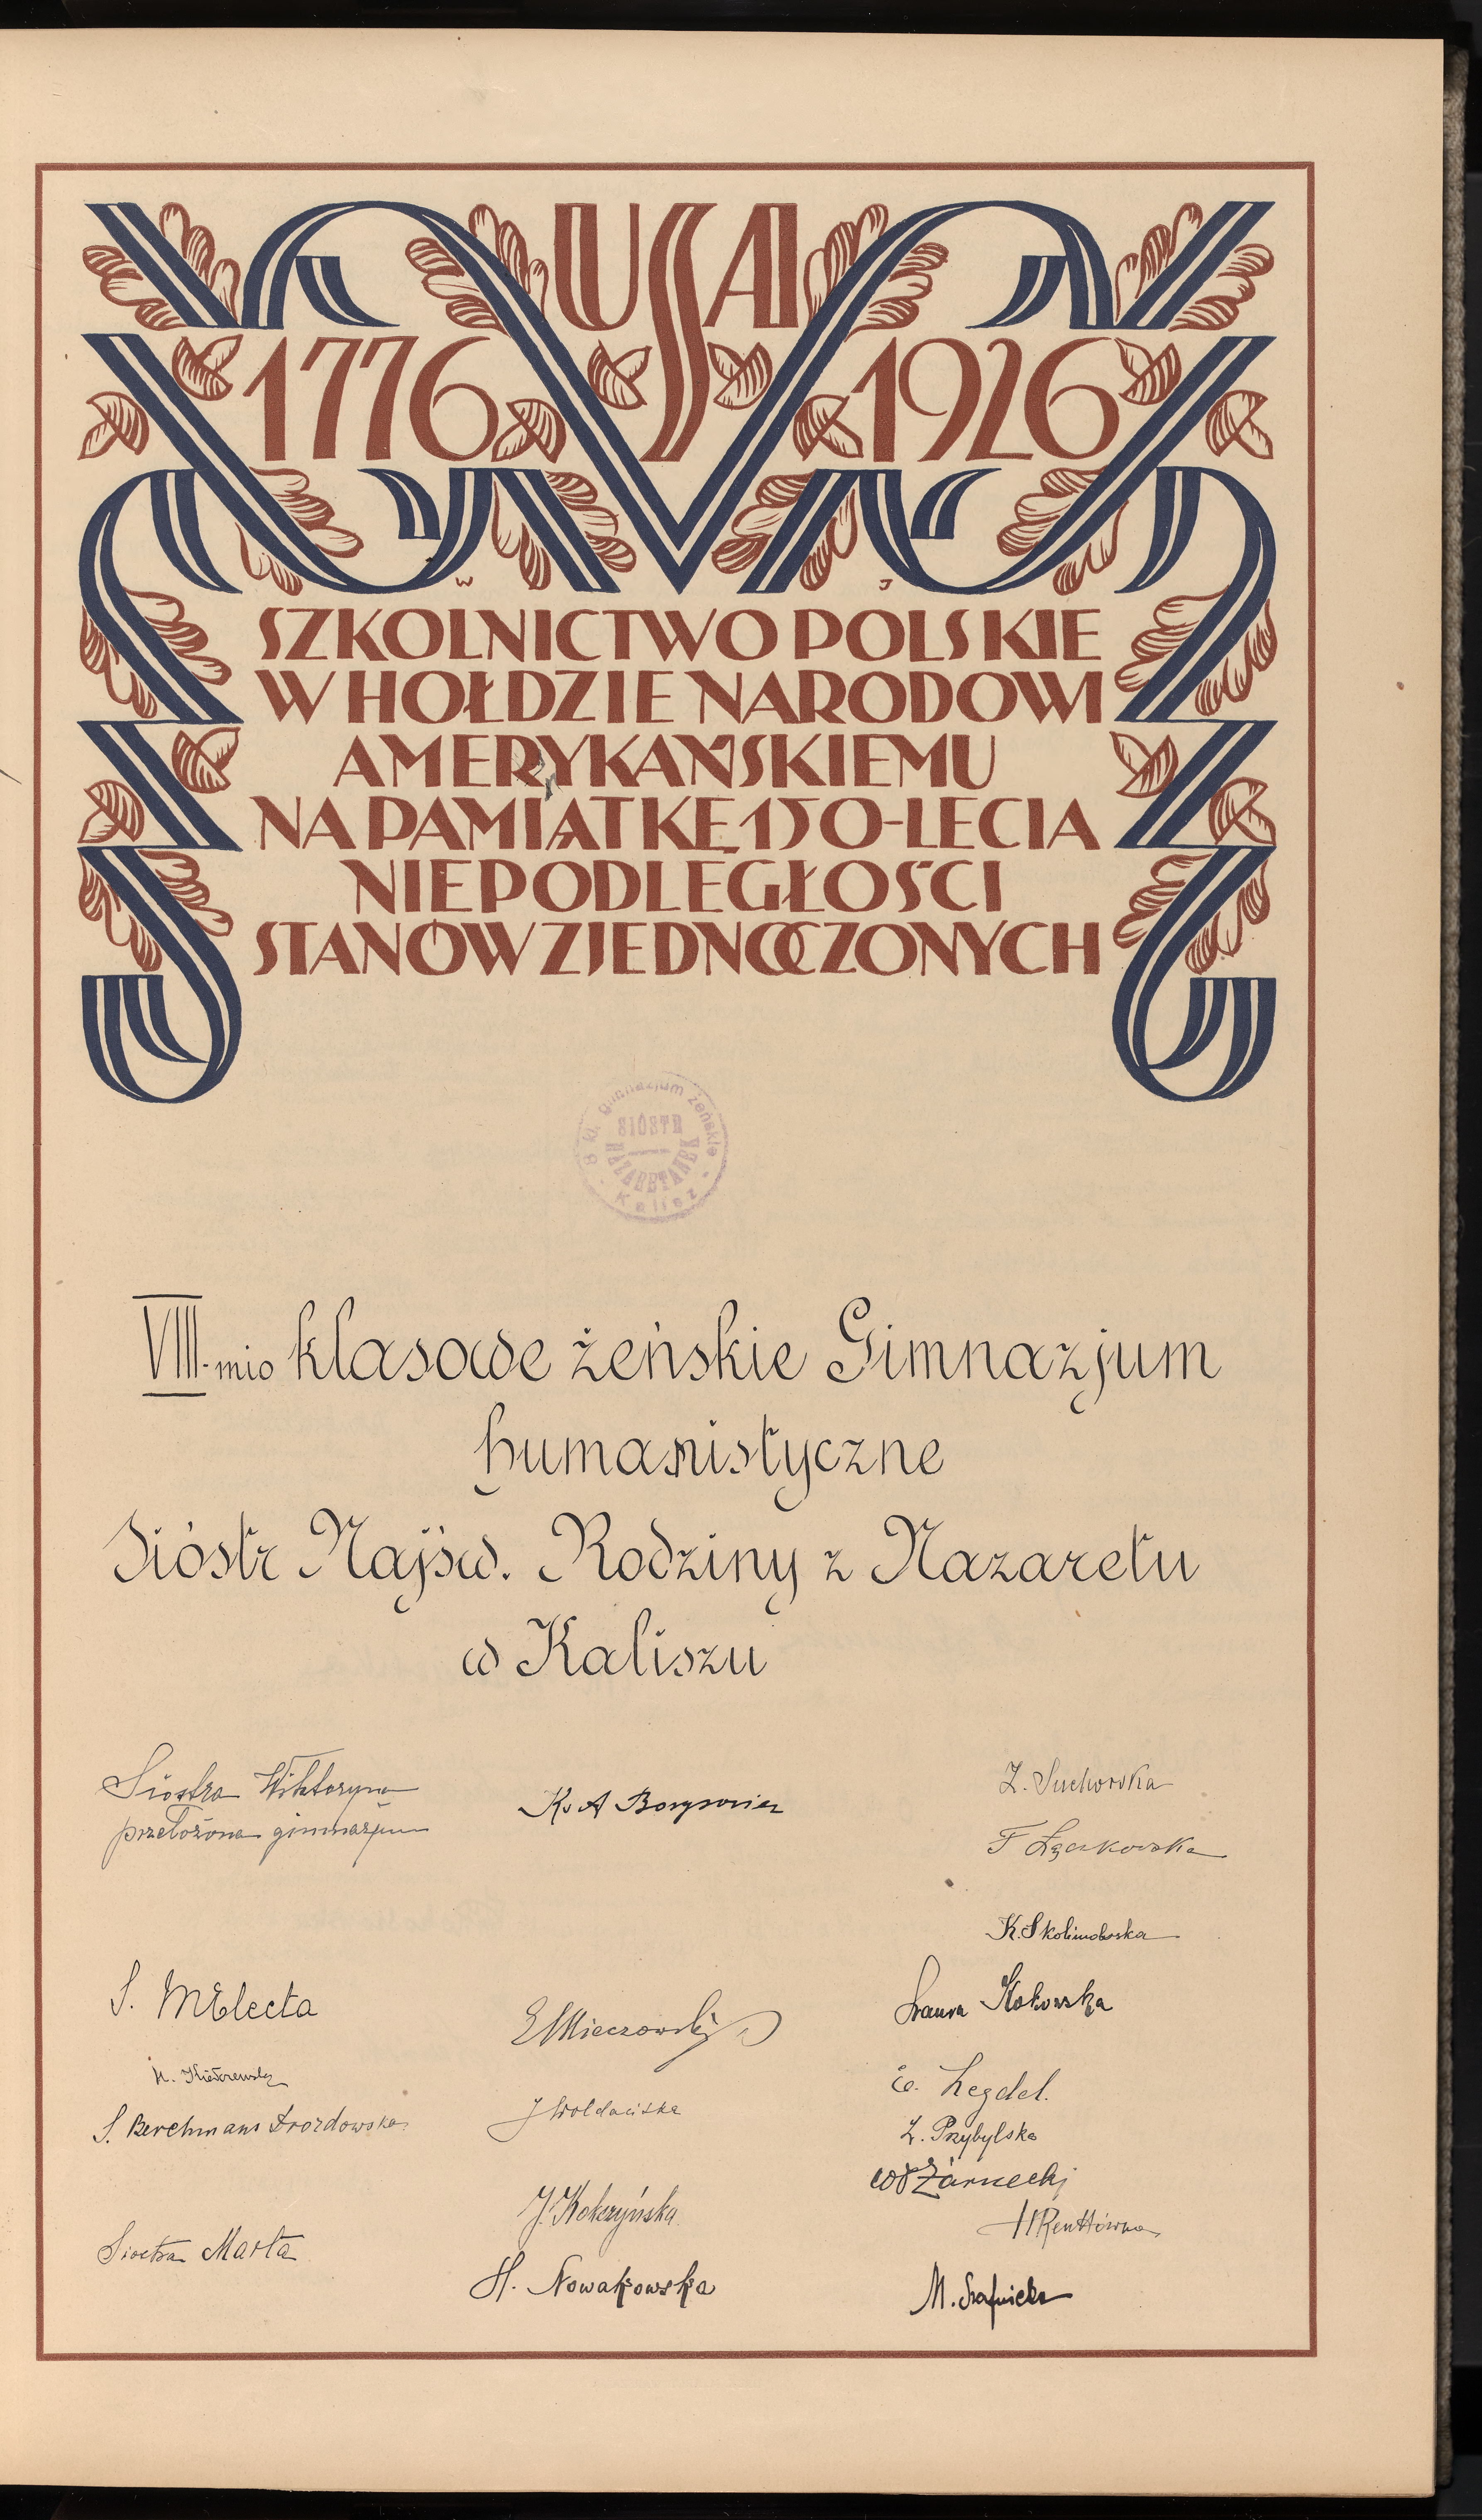 USA
1776 1926
W J
SZKOLNICTWO POLSKIE
W HOŁDZIE NARODOWI
AMERYKAŃSKIEMU
NA PAMIĄTKĘ 150-LECIA
NIEPODLEGŁOŚCI
STANÓW ZJEDNOCZONYCH
8 kl. gimnazjum żeńskie
SIÓSTR
NAZARETANEK
Kalisz
VIII-mio klasowe żeńskie Gimnazjum
humanistyczne
Sióstr Najśw. Rodziny z Nazaretu
w Kaliszu
Siostra Wiktoryna
przełożona gimnazjum
S. M Electa
S. Berchmans Drozdowska
Siostra Marta
Ks A Borysowicz
E Mieczowski
J Wołdańska
J. Kokczyńska
H. Nowakowska
Z. Suchorska
F Łączkowska
K. Skolimowska
Laura Kokowska
Z. Przybylska
Żarnecki
H Renttówna
M.